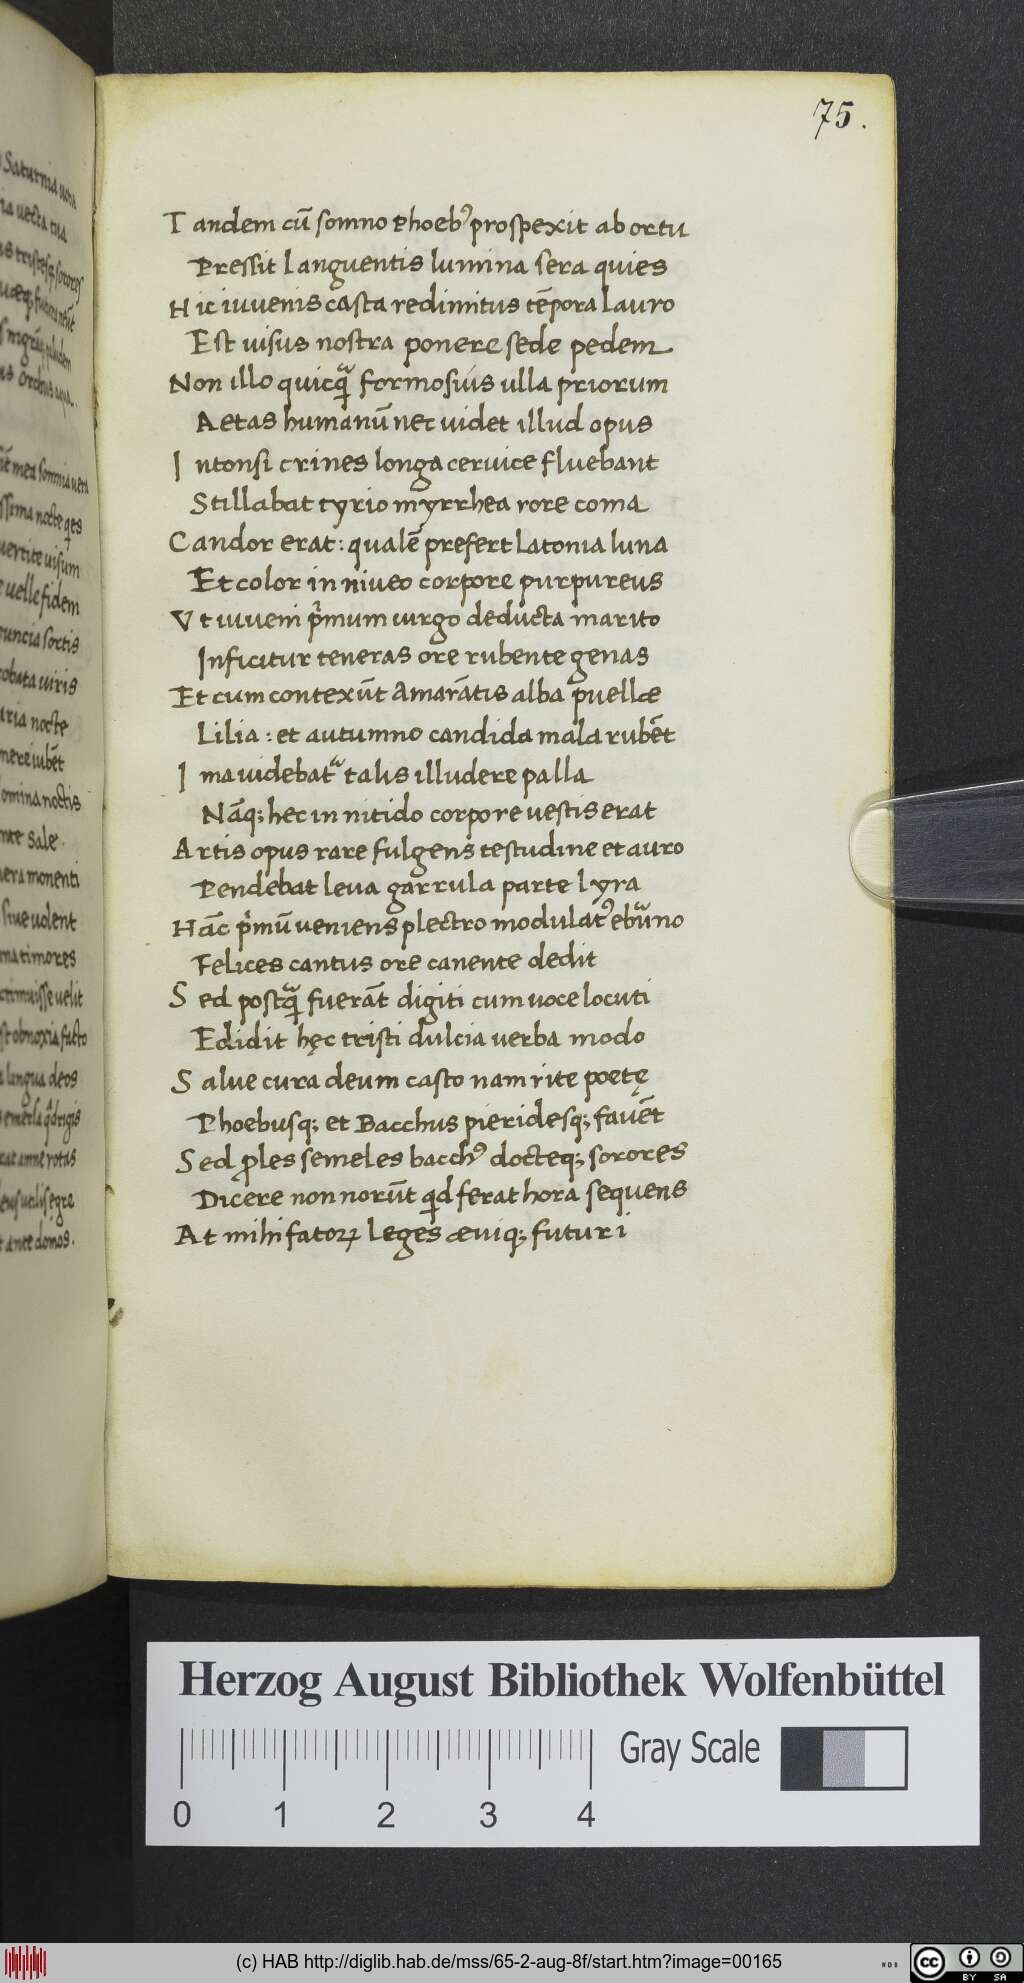 Saturnia uota
ia uecta tua
sorores
mea somnia uera
issima nocte
uertite uisum
e uelle fidem
nuncia sortis
robata uiris
aria nocte
nere iubēt
omina noctis
nte sale.
uera monenti
siue uolent
na timores
rtimuisse uelit
st obnoxia facto
lingua deos
amne rotas
ante domos.
75.
Tandem cū somno Phoebꝰ prospexit ab ortu
Pressit languentis lumina sera quies
Hic iuuenis casta redimitus tēpora lauro
Est uisus nostra ponere sede pedem
Non illo quicq̃ formosius ulla priorum
Aetas humanū nec uidet illud opus
Intonsi crines longa ceruice fluebant
Stillabat tyrio myrrhea rore coma
Candor erat: qualē prefert latonia luna
Et color in niueo corpore purpureus
Vt iuueni p̍mum uirgo deducta marito
Inficitur teneras ore rubente genas
Et cum contexūt amarātis alba puellæ
Lilia: et autumno candida mala rubēt
Ima uidebatᷣ talis illudere palla
Nāq; hec in nitido corpore uestis erat
Artis opus rare fulgens testudine et auro
Pendebat leua garrula parte lyra
Hāc p̍mū ueniens plectro modulatꝰ ebůno
Felices cantus ore canente dedit
Sed postq̃ fuerāt digiti cum uoce locuti
Edidit hęc tristi dulcia uerba modo
Salue cura deum casto nam rite poetę
Phoebusq; et Bacchus pieridesq; fauēt
Sed ꝓles semeles bacchꝰ docteq; sorores
Dicere non norūt qd ferat hora sequens
At mihi fatoꝝ leges æuiq; futuri
Herzog August Bibliothek Wolfenbüttel
0 1 2 3 4
Gray Scale
(c) HAB http://diglib.hab.de/mss/65-2-aug-8f/start.htm?image=00165
cc BY SA